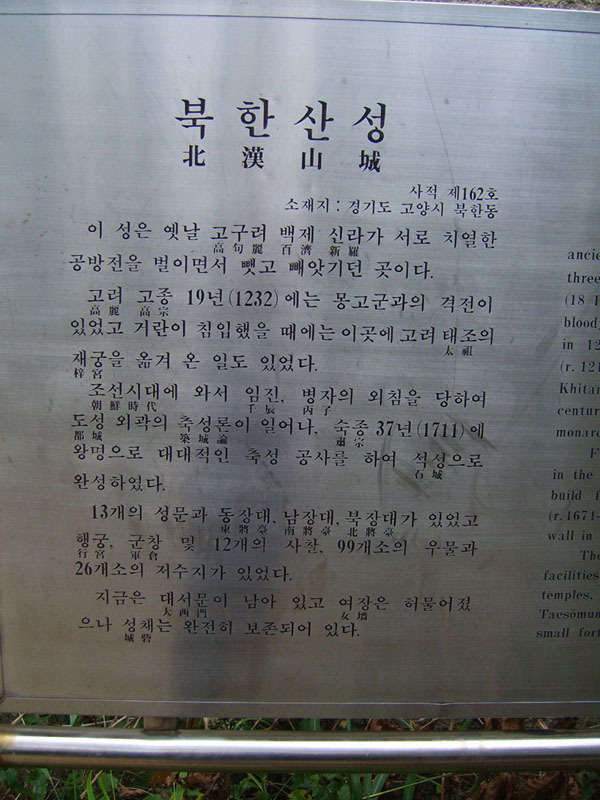 북한산성
北漢山城
사적 제162호
소재지 : 경기도 고양시 북한동
이 성은 옛날 고구려 백제 신라가 서로 치열한
高句麗 百濟 新羅
공방전을 벌이면서 뺏고 빼앗기던 곳이다.
고려 고종 19년(1232)에는 몽고군과의 격전이
高麗 高宗
있었고 거란이 침입했을 때에는 이곳에 고려 태조의
太祖
재궁을 옮겨 온 일도 있었다.
梓宮
조선시대에 와서 임진, 병자의 외침을 당하여
朝鮮時代 壬辰 丙子
도성 외곽의 축성론이 일어나, 숙종 37년(1711)에
都城 築城論 肅宗
왕명으로 대대적인 축성 공사를 하여 석성으로
石城
완성하였다.
13개의 성문과 동장대, 남장대, 북장대가 있었고
東將臺 南將臺 北將臺
행궁, 군창 및 12개의 사찰, 99개소의 우물과
行宮 軍倉
26개소의 저수지가 있었다.
지금은 대서문이 남아 있고 여장은 허물어졌
大西門 女墻
으나 성채는 완전히 보존되어 있다.
城砦
ancie
three
(18
blood,
in 12
(r. 121
Khitan
centur
monarc
F
in the
build f
(r.1674-
wall in
The
facilities
temples,
Taesomun
small fort